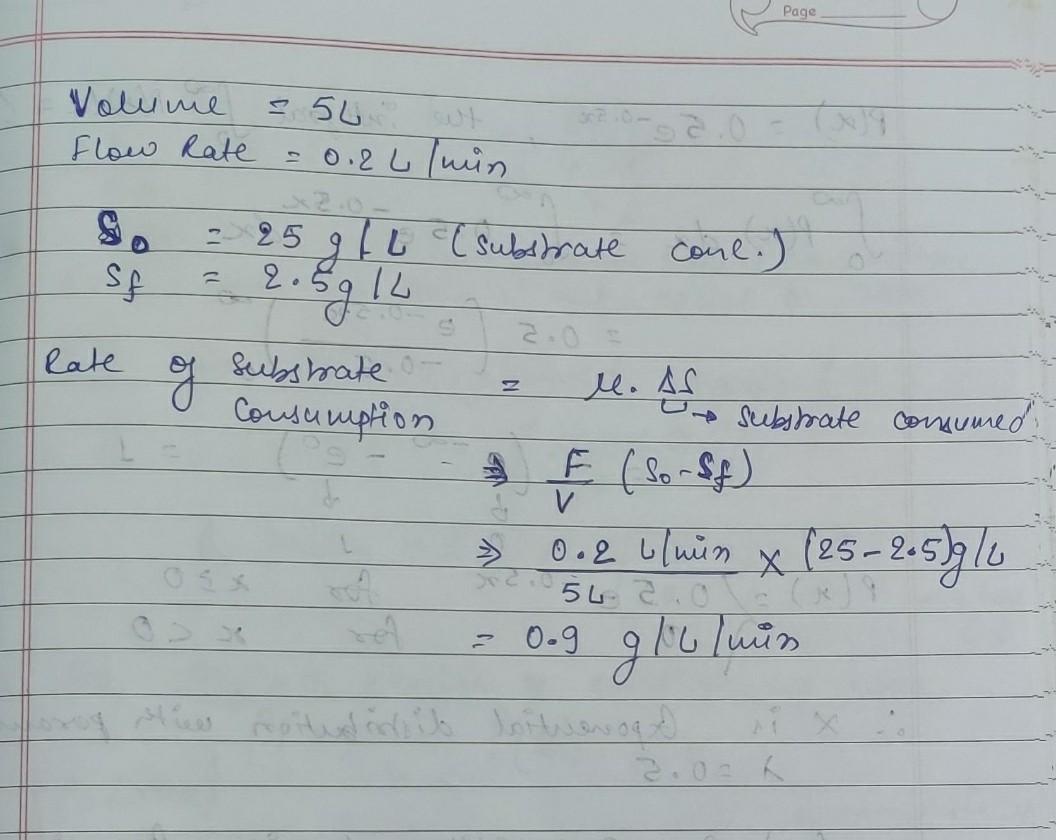 Page
Volume = 5L
Flow Rate = 0.2 L/min
S₀ = 25 g/L (Substrate conc.)
Sf = 2.5g/L
Rate of Substrate Consumption = μ. ΔS
→ Substrate consumed
⇒ F/V (S₀-Sf)
⇒ 0.2 L/min / 5L × (25-2.5)g/L
= 0.9 g/L/min